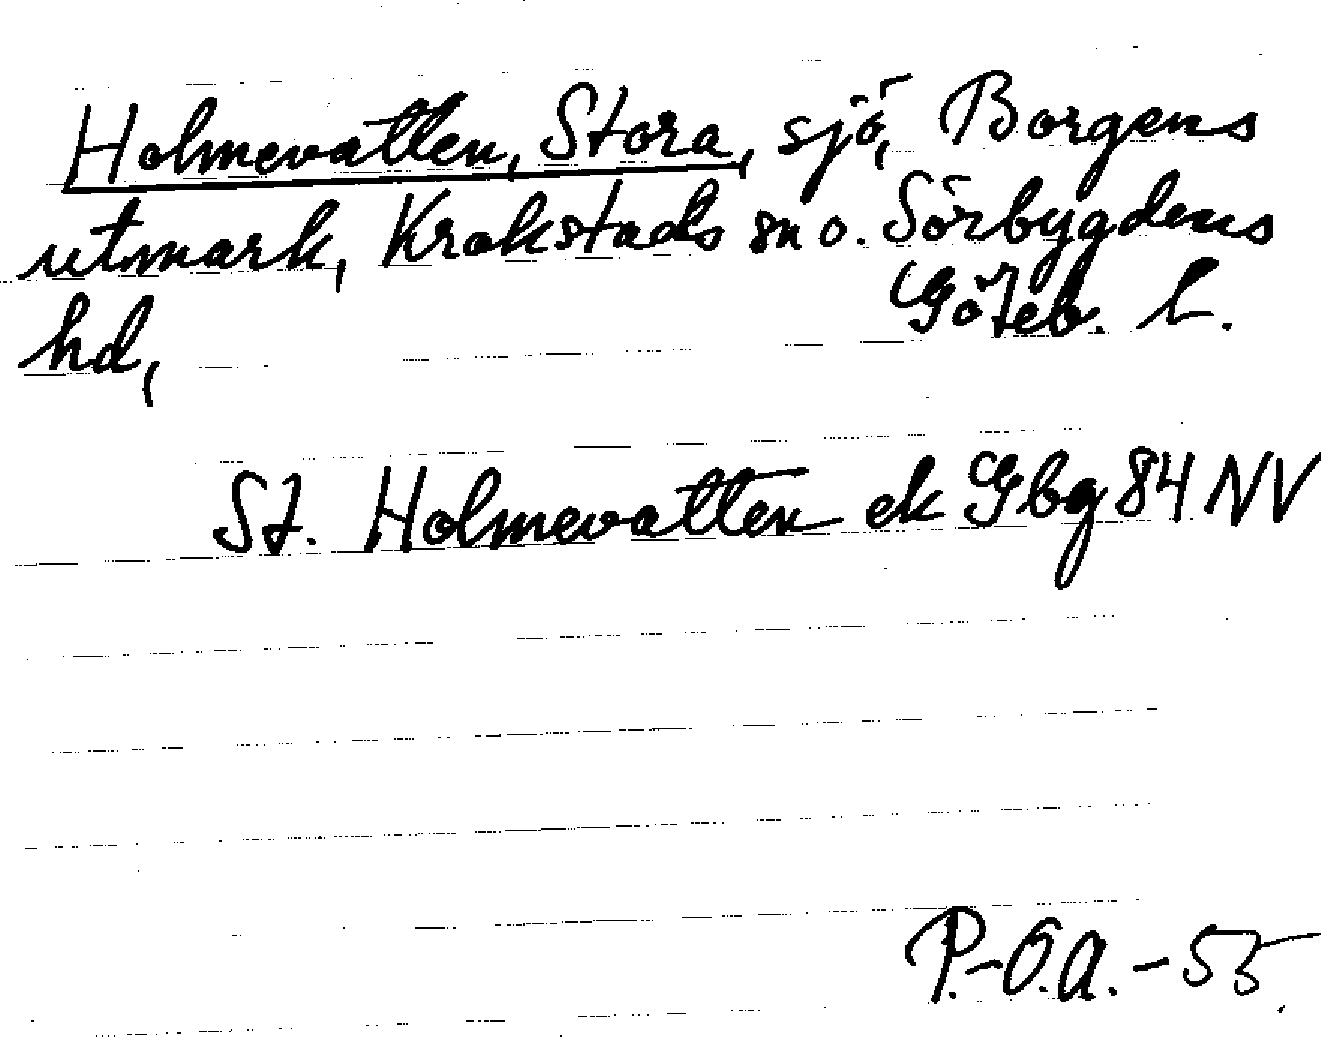 Holmevatten, Stora, sjö, Borgens
utmark, Krokstads sn o. Sörbygdens
hd, Göteb. l.
St. Holmevatten ek Gbg 84 NV
P.-O.A.-55.